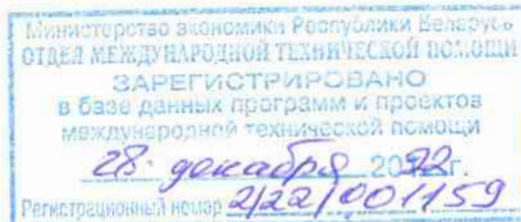 Министерство экономики Республики Беларусь
ОТДЕЛ МЕЖДУНАРОДНОЙ ТЕХНИЧЕСКОЙ ПОМОЩИ
ЗАРЕГИСТРИРОВАНО
в базе данных программ и проектов
международной технической помощи
28 декабря 2022г.
Регистрационный номер 2/22/001159